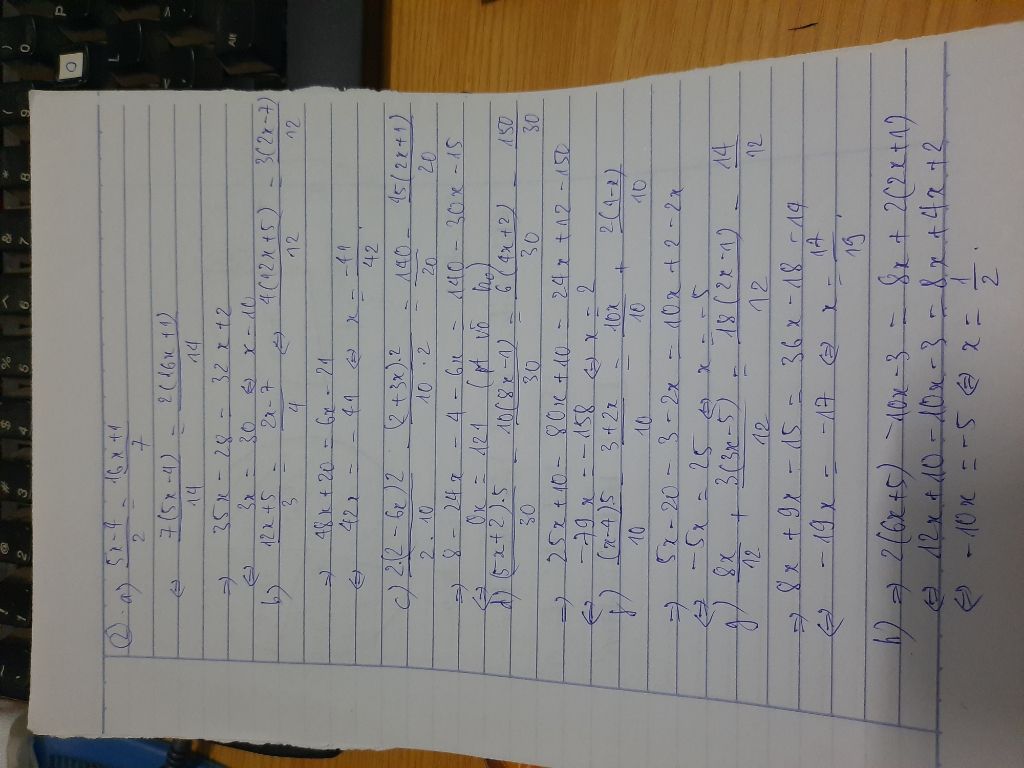 ②. a) (5x-4)/2 = (16x+1)/7
⇔ 7(5x-4)/14 = 2(16x+1)/14
⇒ 35x - 28 = 32x + 2
⇔ 3x = 30 ⇔ x = 10
b) (12x+5)/3 = (2x-7)/4 ⇔ 4(12x+5)/12 = 3(2x-7)/12
⇒ 48x + 20 = 6x - 21
⇔ 42x = -41 ⇔ x = -41/42.
c) 2(2-6x)2/2.10 - (2+3x).2/10.2 = 140/20 - 15(2x+1)/20
⇒ 8 - 24x - 4 - 6x = 140 - 30x - 15
⇔ 0x = 121 (pt vô No)
d) (5x+2).5/30 - 10(8x-1)/30 = 6(4x+2)/30 - 150/30
⇒ 25x + 10 - 80x + 10 = 24x + 12 - 150
⇔ -79x = -158 ⇔ x = 2
f) (x-4)5/10 - (3+2x)/10 = 10x/10 + 2(1-x)/10
⇒ 5x - 20 - 3 - 2x = 10x + 2 - 2x
⇔ -5x = 25 ⇔ x = -5
g) 8x/12 + 3(3x-5)/12 = 18(2x-1)/12 - 14/12
⇒ 8x + 9x - 15 = 36x - 18 - 14
⇔ -19x = -17 ⇔ x = 17/19.
h) ⇒ 2(6x+5) - 10x - 3 = 8x + 2(2x+1)
⇔ 12x + 10 - 10x - 3 = 8x + 4x + 2
⇔ -10x = -5 ⇔ x = 1/2.